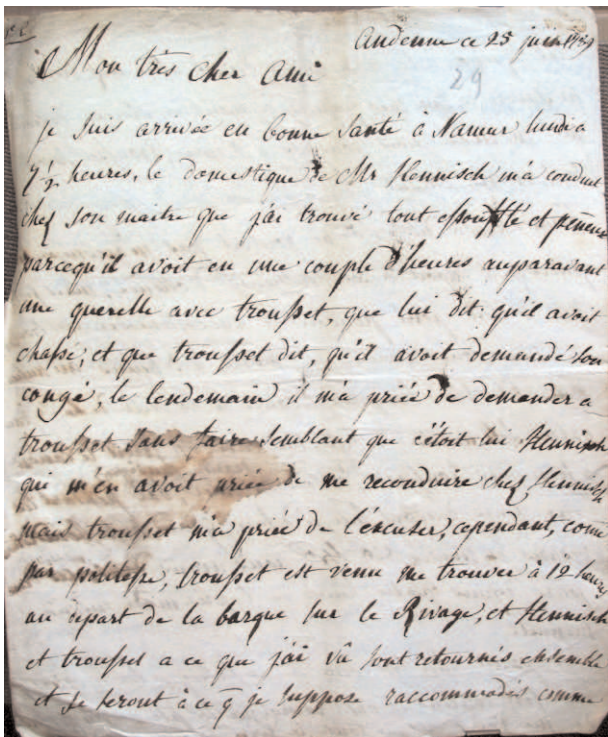 Andenne ce 25 juin
29
Mon très cher Ami
je suis arrivée en bonne santé à Namur lundi a
7 1/2 heures, le domestique de Mr Hennisch m'a conduit
chez son maitre que j'ai trouvé tout essoufflé et peneux
parcequ'il avoit eu une couple d'heures auparavant
une querelle avec trousset, que lui dit qu'il avoit
chassé, et que trousset dit, qu'il avoit demandé son
congé, le lendemain il m'a priée de demander a
trousset sans faire semblant que c'étoit lui Hennisch
qui m'en avoit priée de me reconduire chez Hennisch
mais trousset m'a priée de l'éxcuser, cependant, come
par politesse, trousset est venu me trouver à 12 heures
au départ de la barque sur le Rivage, et Hennisch
et trousset a ce que j'ai vû sont retournés ensemble
et se seront à ce q̄ je suppose raccommodés comme